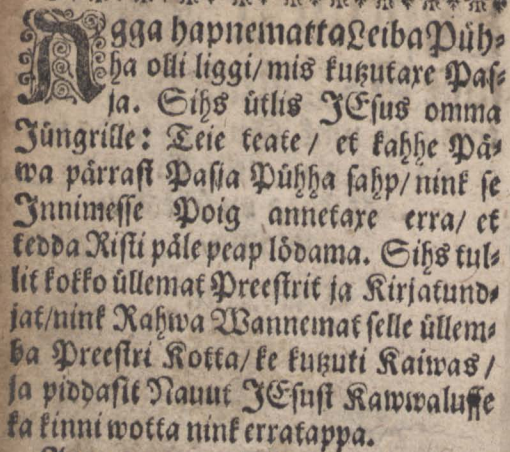 Agga hapnematta Leiba Püh-
ha olli liggi/ mis kutzutaxe Pas-
ja. Sihs ütlis JEsus omma
Jüngrille: Teie teate / et kahhe Pä-
wa pärrast Pasja Pühha sahp/ nink se
Innimesse Poig annetaxe erra/ et
tedda Risti päle peap lödama. Sihs tul-
lit kokko üllemat Preestrit ja Kirjatund-
jat/ nink Rahwa Wannemat selle üllem-
ba Preestri Kotta/ ke kutzuti Kaiwas /
ja piddasit Nauut JEsust Kawwalusse
ka kinni wotta nink erratappa.